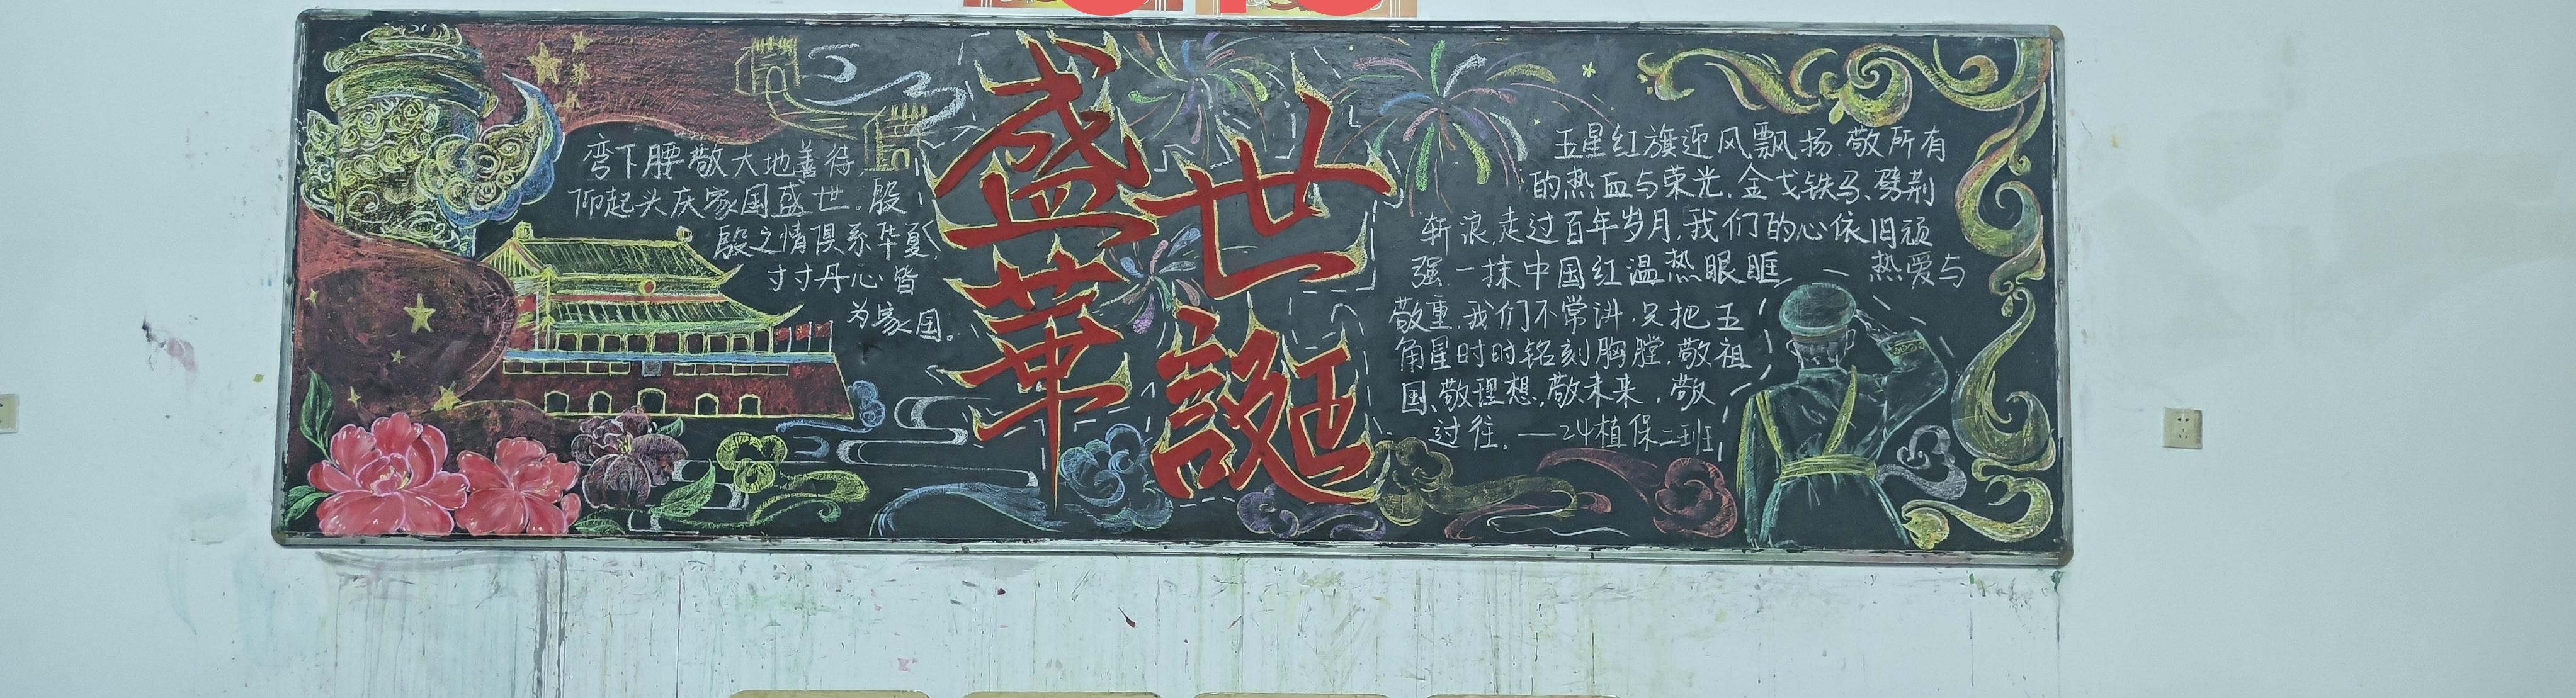 弯下腰敬大地善待
仰起头庆家国盛世。殷
殷之情俱系华夏,
寸寸丹心皆
为家国。
盛世
華誕
五星红旗迎风飘扬.敬所有
的热血与荣光.金戈铁马、劈荆
斩浪,走过百年岁月,我们的心依旧顽
强.一抹中国红温热眼眶 热爱与
敬重.我们不常讲.只把五
角星时时铭刻胸膛.敬祖
国、敬理想,敬未来.敬
过往.—24植保二班